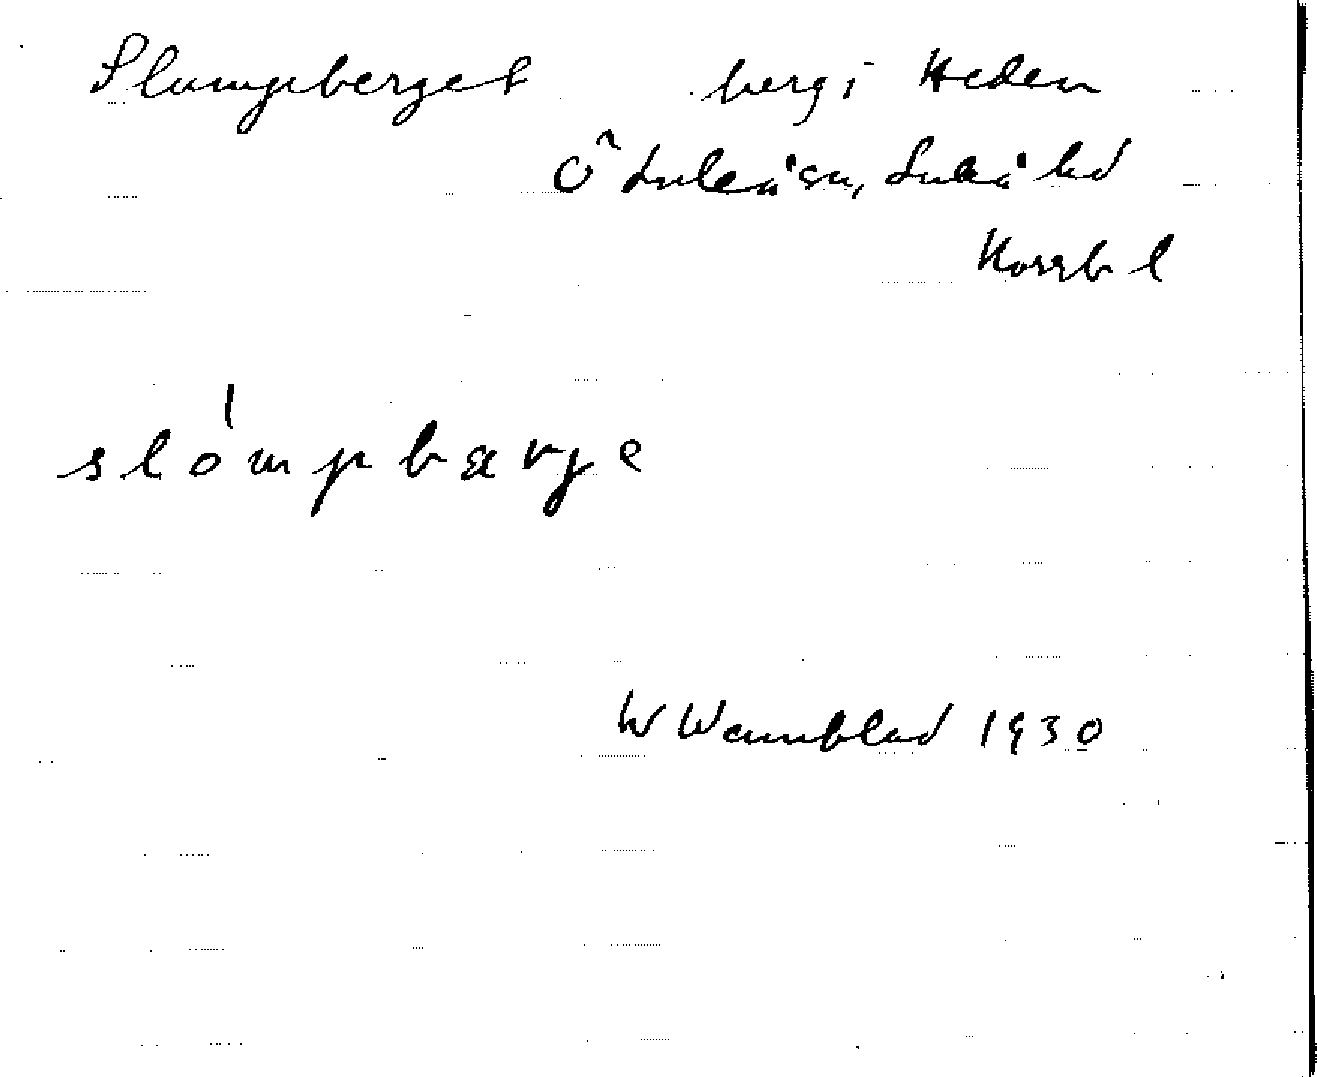 Slumpberget berg i Heden
Ö Luleå sn, Luleå lkd
Norrb l
slómpbærje
W Wannblad 1930